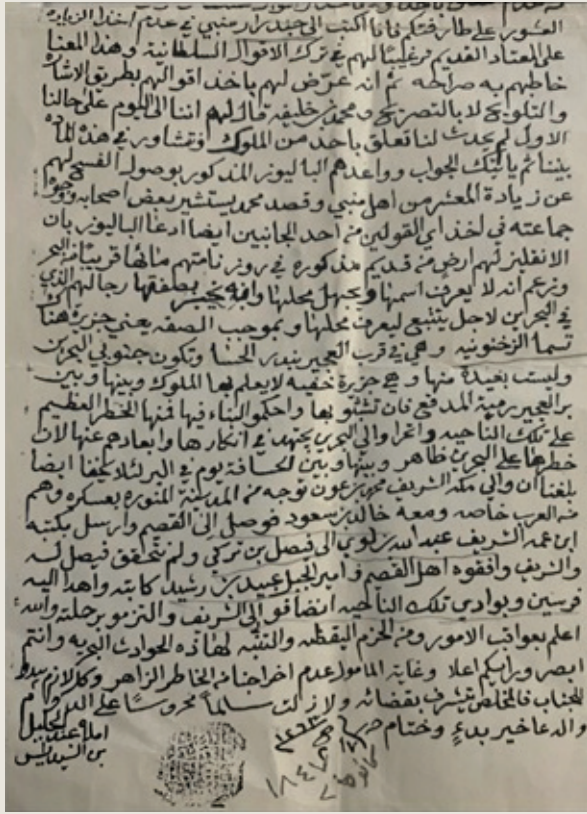 العشور على طارفتكم فانا اكتب الى جندرار منبي في عدم اخذ الزيادة
على المعتاد القديم ترغيبًا لهم في ترك الاقوال السلطانية وهذا المعنا
خاطبهم به صراحه ثم انه عرّض لهم باخذ اقوالهم بطريق الاشاره
والتلويح لا بالتصريح ومحمد بن خليفه قال لهم اننا الى اليوم على حالنا
الاول لم يحدث لنا تعلق باحد من الملوك ونتشاور في هذه الماده
بيننا ثم ياتيك الجواب وواعدهم الباليوز المذكور بوصول الفسح لهم
عن زيادة المعشر من اهل منبي وقصد محمد يستشير بعض اصحابه
جماعته في اخذ اي القولين من احد الجانبين ايضا ادعا الباليوز بان
الانقليز لهم ارض من قديم مذكوره في روزنامتهم مائها قريبًا من البحر
وزعم انه لا يعرف اسمها ويجهل محلها وانه بصفتها رجالهم الذي
في البحرين لاجل يتتبع ليعرف محلها وبموجب الصفه يعني جزيرة هنا
تسما الزخنونيه وهي في قرب العجير بندر الحسا وتكون جنوبي البحرين
وليست بعيدة منها وهي جزيرة خفيه لا يعلم بها الملوك وبينها وبين
بر العجير رمية المدفع فان تشبثو بها واحكمو البناء فيها فمنها الخطر العظيم
على تلك الناحيه واغرا والي البحرين يجتهد في انكارها وابعادهم عنها لان
خطرها على البحرين ظاهر وبينها وبين الحسا مسافة يوم في البر لئلا يخفا ايضا
بلغنا ان والي مكه الشريف محمد بن عون توجه من المدينة المنوره بعسكره وهم
من العرب خاصه ومعه خالد بن سعود فوصل الى القصيم وارسل بكتبه
ابن عمه الشريف عبدالله بن لوي الى فيصل بن تركي ولم نتحقق فيصل لسه
والشريف وافقوه اهل القصيم وامير الجبل عبيد بن رشيد كاتبه واهدا اليه
فرسين وبوادي تلك الناحيه انضافو الى الشريف والتزمو برحلته والله
اعلم بعواقب الامور ومن الحزم اليقظه والتنبّه لهاذه الحوادث البحريه وانتم
ابصر ورايكم اعلا وغاية المامول عدم اخراجنا من الخاطر الزاهر وكلا لازم يبدو
للجناب فالمخلص يتشرف بقضائه ولا زلت سالماً محروسًا على الدوام
والدعا خير بدءٍ وختام حرر
١٢٦٣
١٨٤٧